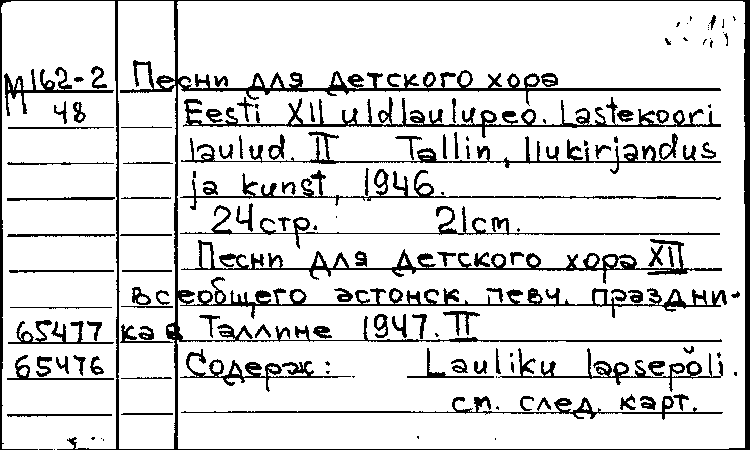 М 162-2 Песни для детского хора
48 Eesti XII uldlaulupeo. Lastekoori
laulud. II Tallin, Ilukirjandus
ja kunst, 1946.
24 стр. 21 cm.
Песни для детского хора XII
всеобщего эстонск. певч. праздни-
65477 ка в Таллине 1947. II
65476 Содерж: Lauliku lapsepõli.
см. след. карт.